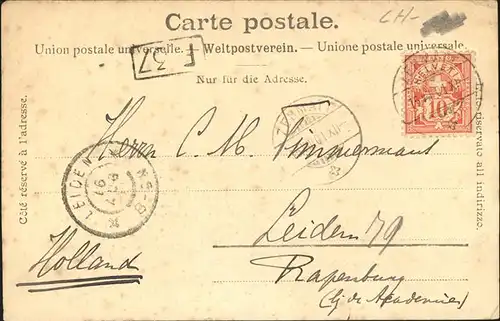 Carte postale.
CH-
Union postale universelle. - Weltpostverein. - Unione postale universale.
F 37
Nur für die Adresse.
HELVETIA
10
Côté réservé à l'adresse.
riservato all indirizzo.
Herrn C. M. Timmermans
LEIDEN
Leiden 79
Holland
Rapenburg
(bij de Academie)